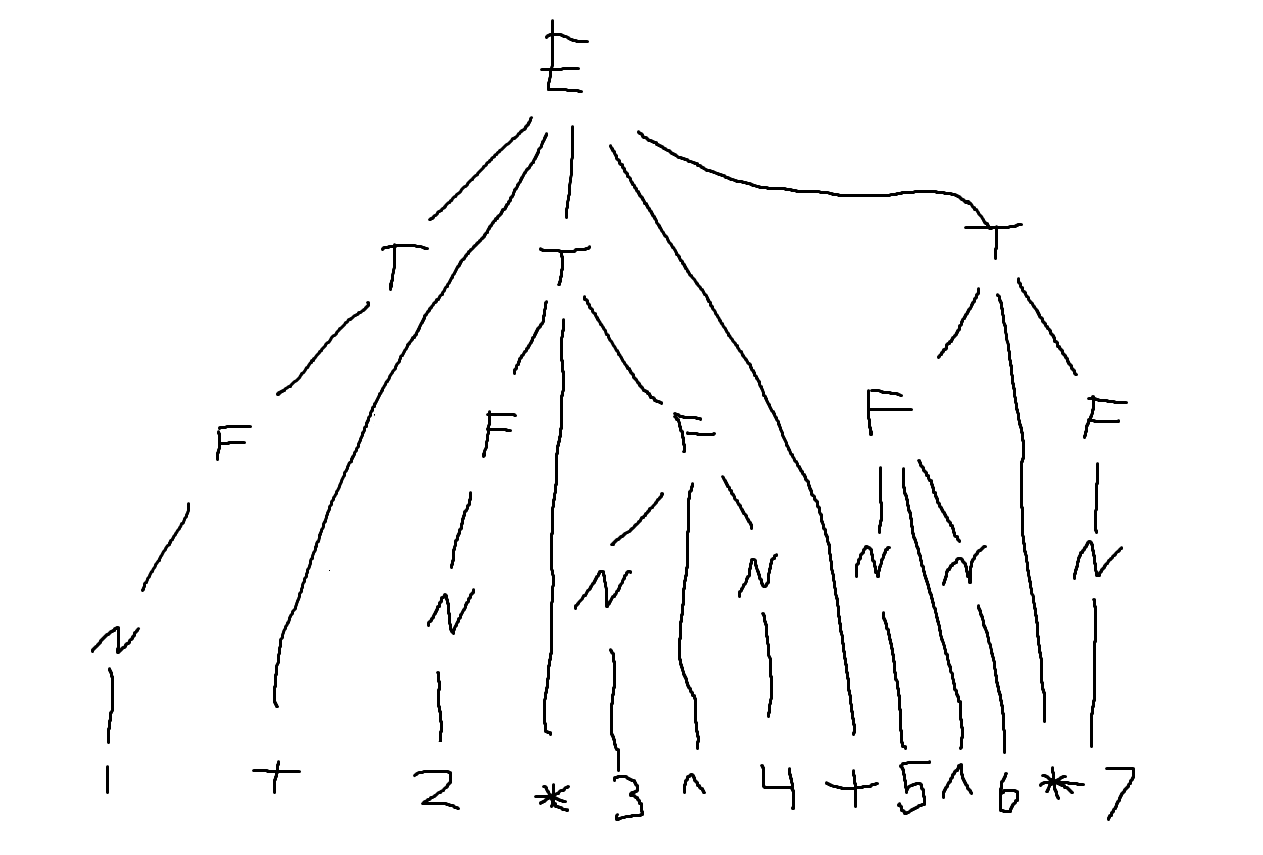 E
T T T
F F F F F
N N N N N N N
1 + 2 * 3 ^ 4 + 5 ^ 6 * 7